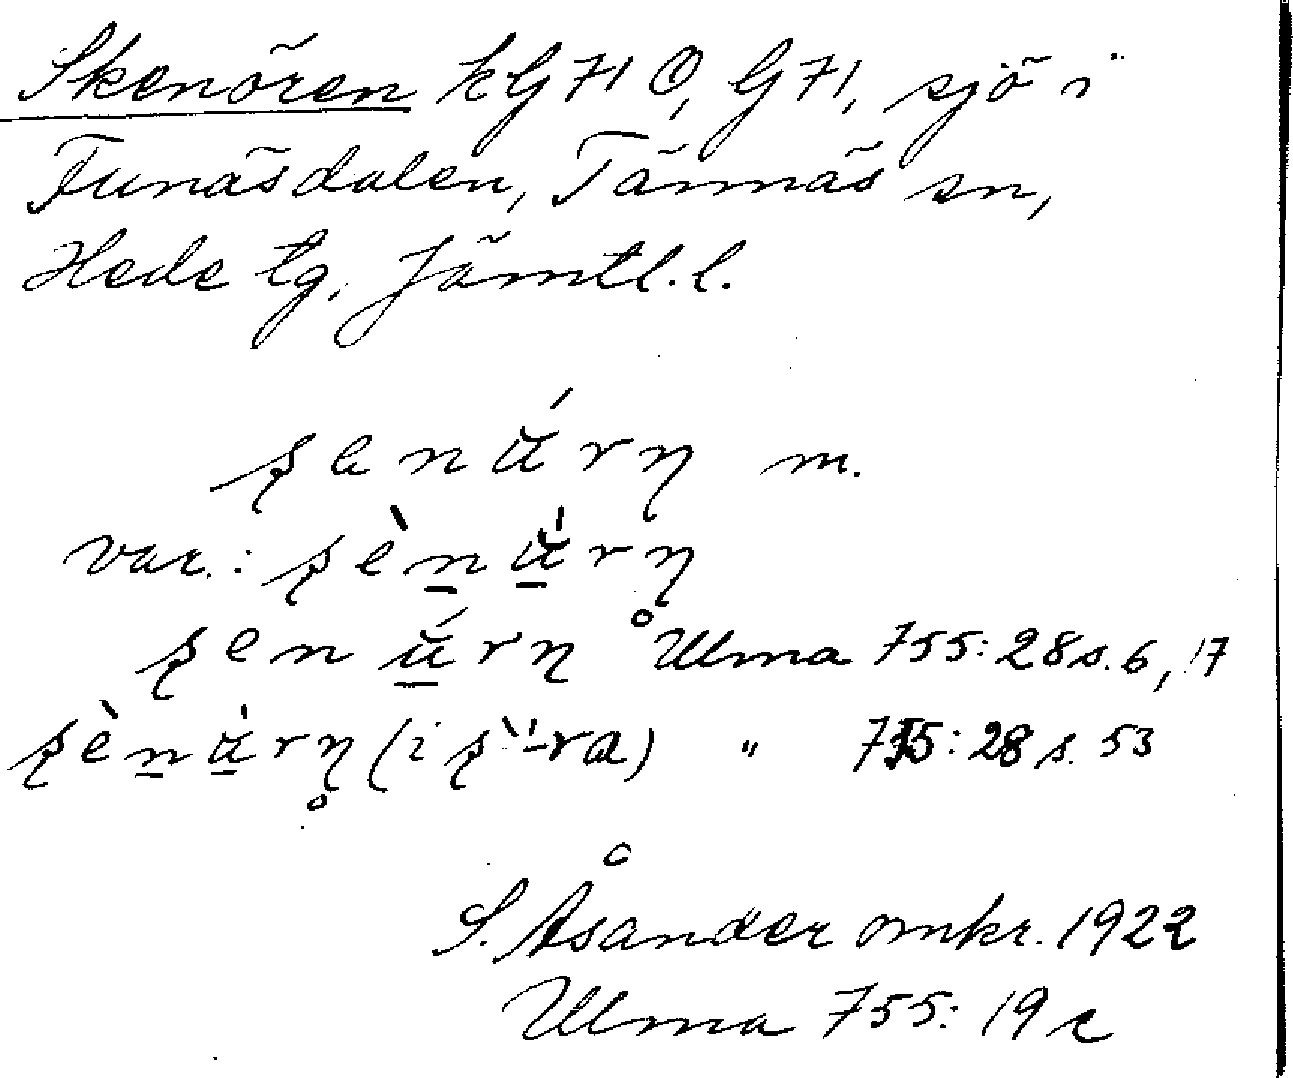 Skenören kG 71 O, G 71, sjö i
Funäsdalen, Tännäs sn,
Hede tg, Jämtl. l.
m.
var.:
Ulma 755:28 s. 6, 17
(i -ra) " 755:28 s. 53
S. Åsander omkr. 1922
Ulma 755:19 c